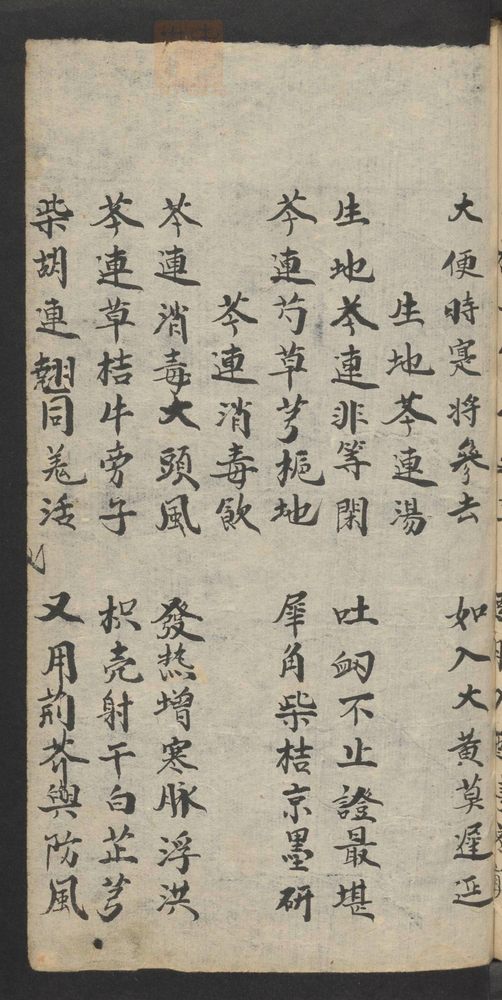 大便時寔将參去 如入大黄莫遲延
生地芩連湯
生地芩連非等閑 吐衂不止證最堪
芩連芍草芎梔地 犀角柴桔京墨研
芩連消毒飲
芩連消毒大頭風 發热增寒脉浮洪
芩連草桔牛旁子 枳壳射干白芷芎
柴胡連翹同羗活 又用荊芥與防風